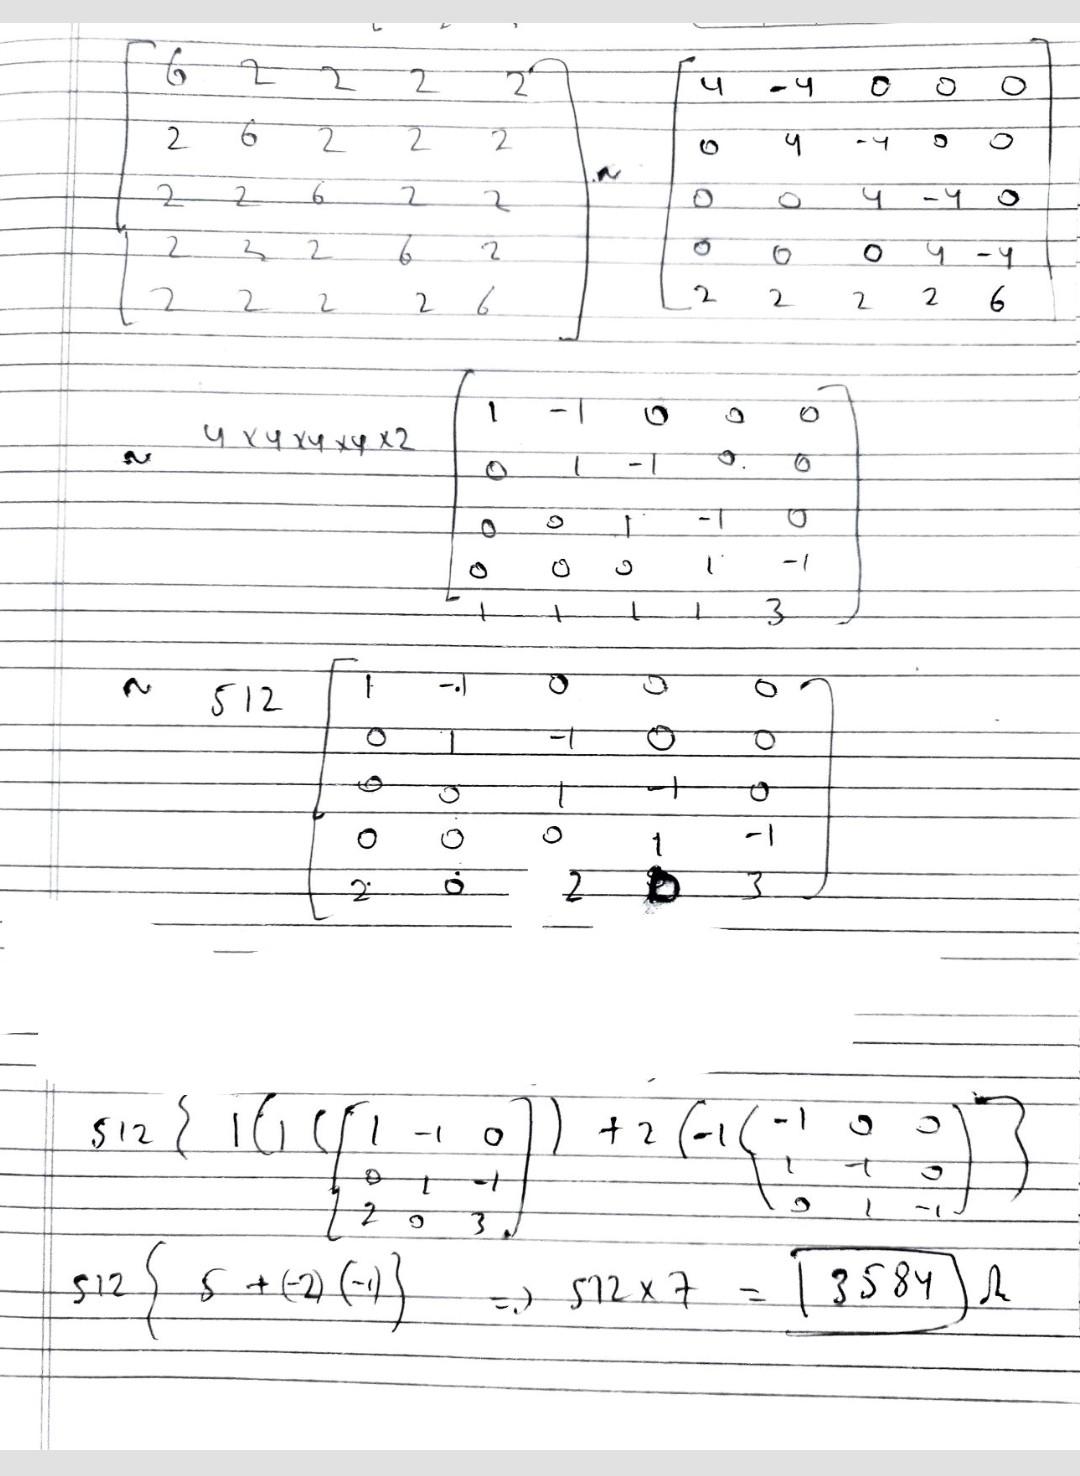 6 2 2 2 2
2 6 2 2 2
2 2 6 2 2
2 2 2 6 2
2 2 2 2 6
~
4 -4 0 0 0
0 4 -4 0 0
0 0 4 -4 0
0 0 0 4 -4
2 2 2 2 6
~ 4x4x4x4x2
1 -1 0 0 0
0 1 -1 0 0
0 0 1 -1 0
0 0 0 1 -1
1 1 1 1 3
~ 512
1 -1 0 0 0
0 1 -1 0 0
0 0 1 -1 0
0 0 0 1 -1
2 0 2 0 3
512 { 1(1([1 -1 0])) + 2(-1(-1 0 0)) }
0 1 -1 1 -1 0
2 0 3 0 1 -1
512 { 5 + (-2)(-1) } => 512 x 7 = 3584